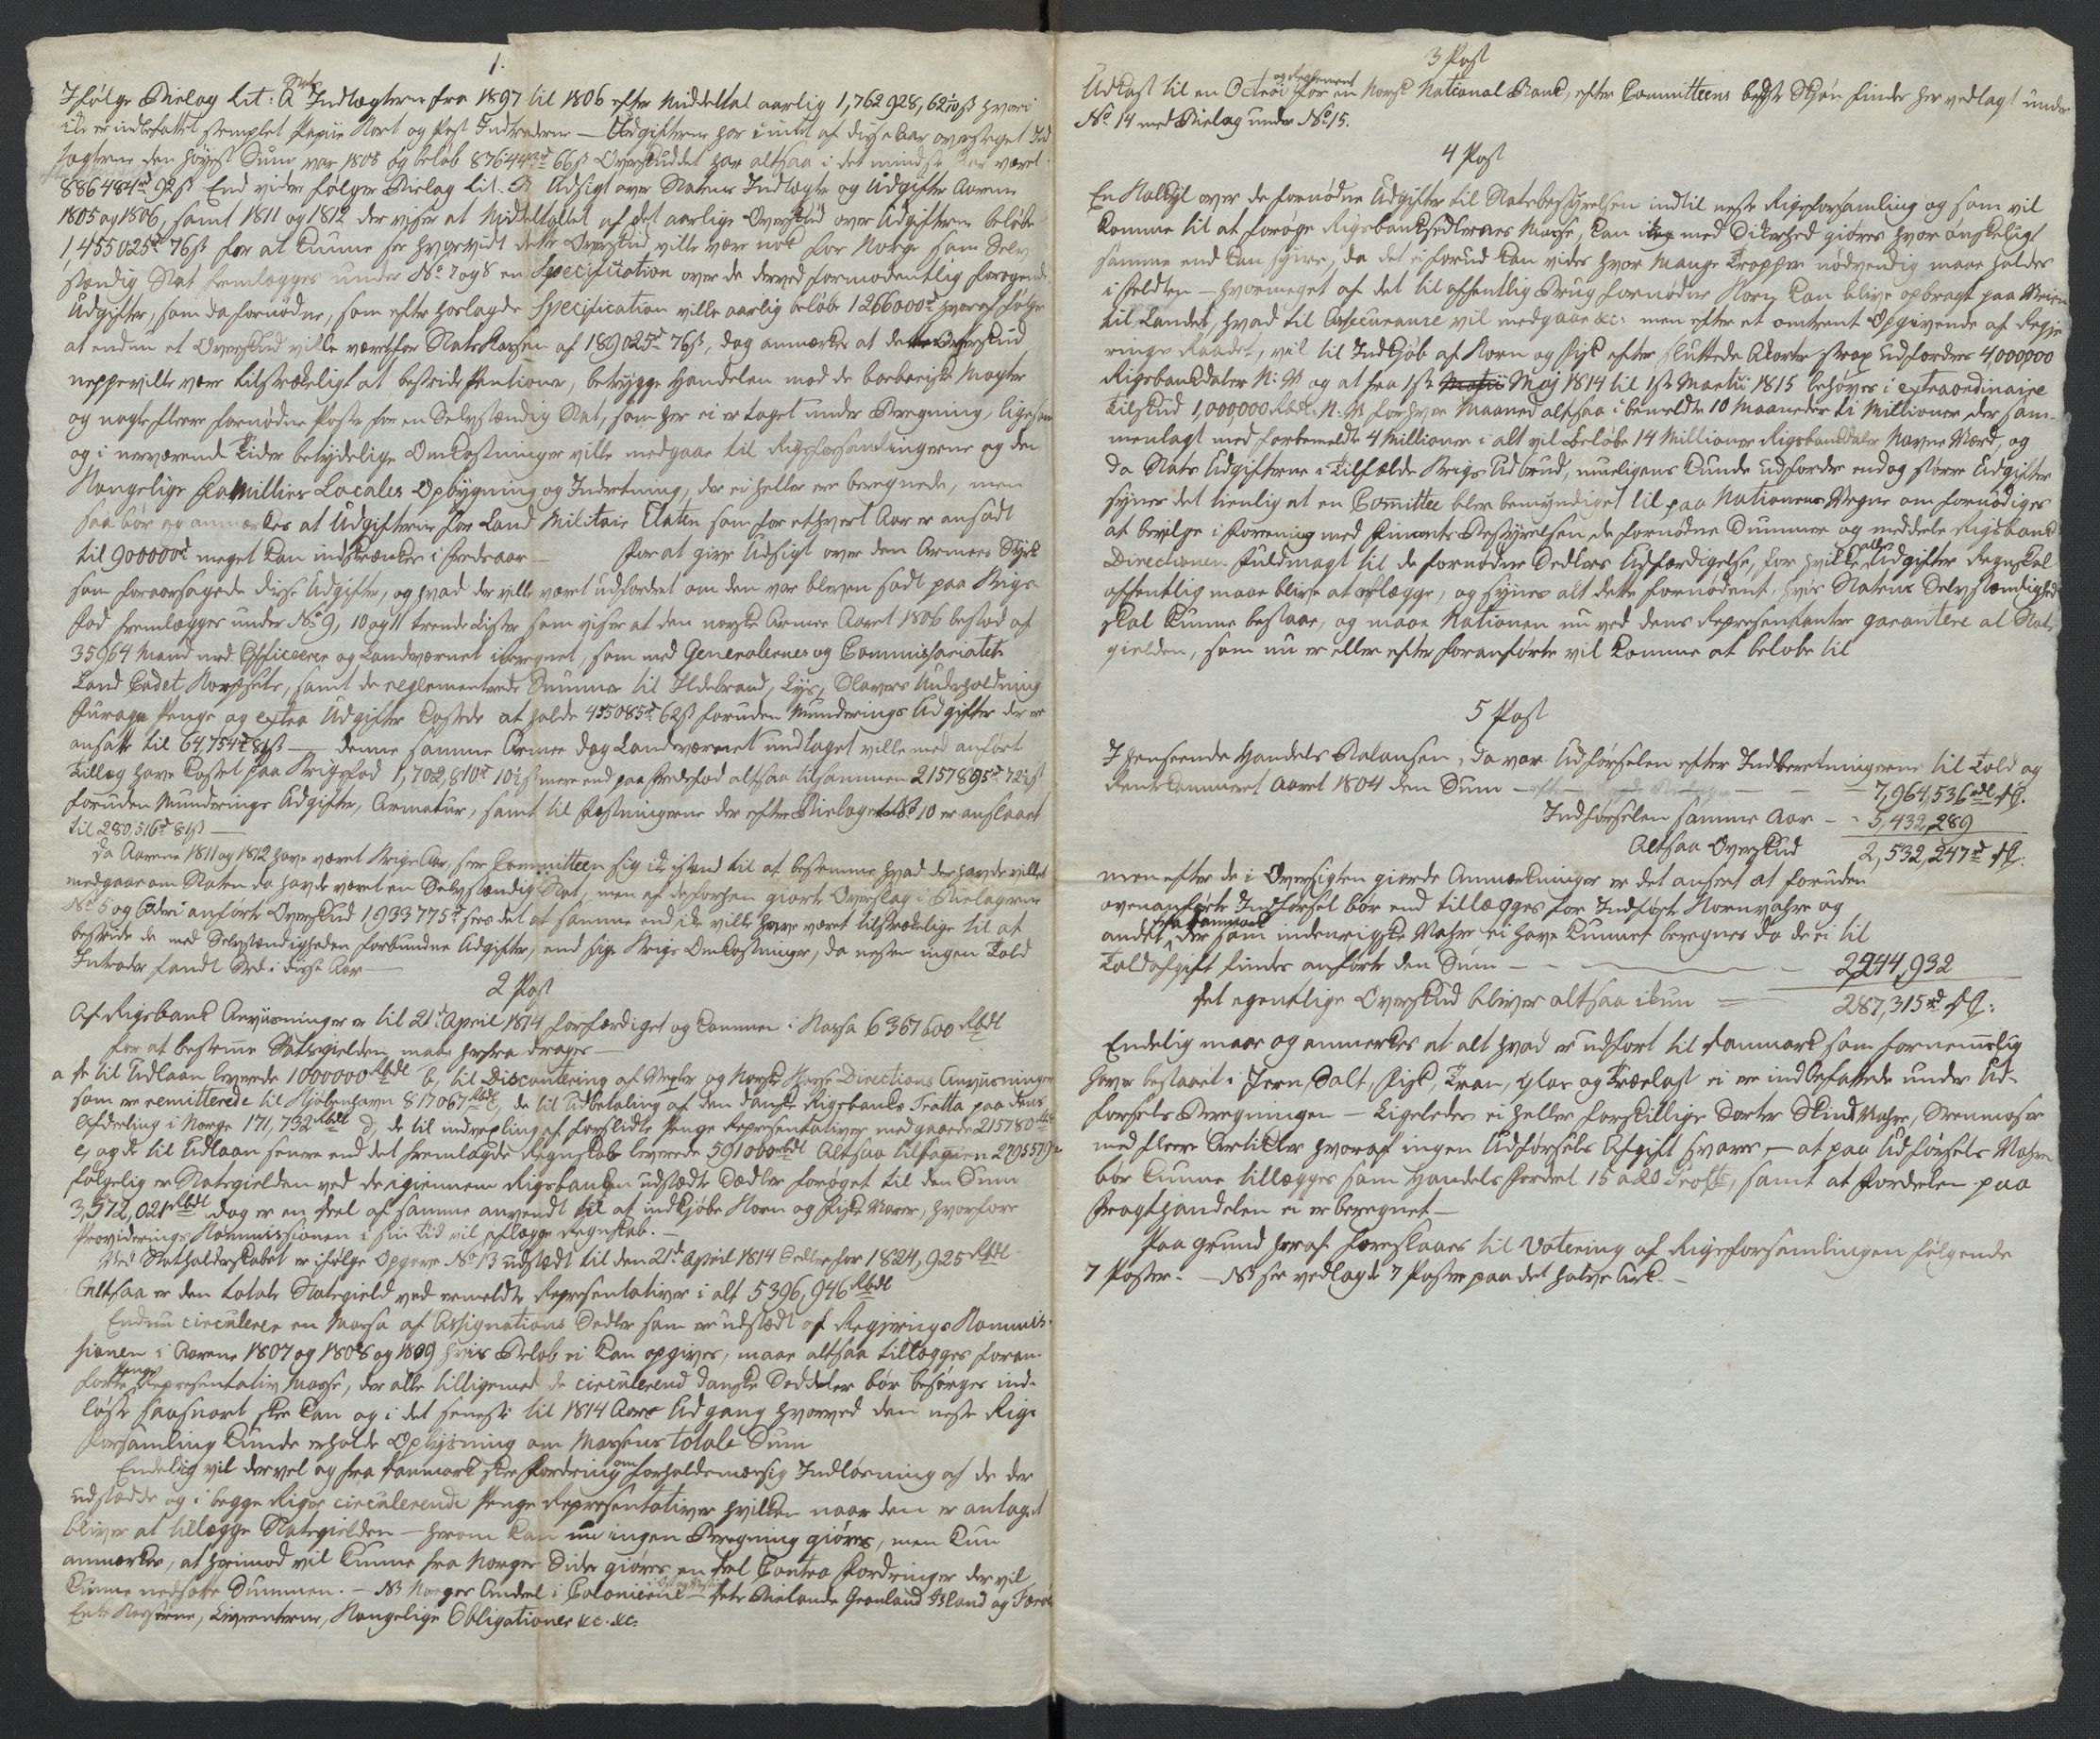 1.
Ifølge Bielag Lit: A Stats Indtægterne fra 1797 til 1806 efter Middeltal aarlig 1,762928,62 10 ß hvori
ikke er indbefattet stemplet Papiir Kort og Post Indtraderne — Udgifterne har i intet af disse Aar oversteget Ind
tægterne den høyest Sum var 1806 og beløb 876443rd 66ß Overskuddet har altsaa i det mindste Aar været
886484rd 92ß End videre følger Bielag Lit. B Udsigt over Statens Indtægter og Udgifter Aarene
1805 og 1806, samt 1811 og 1812 der viser at Middeltallet af det aarlige Overskud over Udgifterne beløbe
1,455025rd 76ß for at kunne see hvorvidt dette Overskud ville være nok for Norge som Selv
stændig Stat fremlægges under No 7 og 8 en Specification over de derved formodentlig forøgende
Udgifter, som da fornødne, som efter hoslagde Specification ville aarlig beløbe 1266000rd hvoraf følger
at endnu et Overskud ville været for Stats Kassen af 189025rd 76ß, dog anmærkes at dette Overskud
neppe ville være tilstrækeligt at bestride Pentioner, betrygge Handelen mod de barbariske Magter
og nogle flere fornødne Poster for en Selvstændig Stat, som her ei er taget under Beregning, ligesom
og i nærværende Tider betydelige Omkostninger ville medgaae til Rigsforsamlingerne og den
Kongelige Famillies Locales Opbygning og Indretning, der ei heller ere beregnede, men
saa bør og anmærkes at Udgifterne for Land Militair Etaten som for ethvert Aar er ansadt
til 900000rd meget kan indskrænkes i Fredsaar — For at give Udsigt over den Armees Styrke
som foraarsagede disse Udgifter, og hvad der ville været udfordret om den var bleven sadt paa Krigs-
fod fremlægges under No 9, 10 og 11 trende Lister som viser at den norske Armee Aaret 1806 bestod af
35964 Mand med Officerer og Landværnet iberegnet, som med Generalerne og Commissariatet
Land Cadet Korpset, samt de reglementerede Summer til Ildebrand, Lys, Slavers Underholdning
Furage Penge og extra Udgifter kostede at holde 455085rd 62ß foruden Munderings Udgifter der er
ansatte til 64,754rd 81ß — denne samme Armee dog Landværnet undtaget ville med anførte
Tillæg have kostet paa Krigsfod 1,702,810rd 10ß mere end paa Fredsfod altsaa tilsammen 2157895rd 72ß
foruden Munderings Udgifter, Armatur, samt til Fæstningerne der efter Bielaget No 10 er anslaaet
til 280,516rd 81ß —
Da Aarene 1811 og 1812 have været Krigs Aar, seer Committeen sig ikke istand til at bestemme hvad der havde villet
medgaae om Staten da havde været en Selvstændig Stat, men af de forhen giorte Overslag i Bielagerne
No 5 og 6 deri anførte Overskud 1933775rd sees det at samme end ikke ville have været tilstrækelige til at
bestride de med Selvstændigheden forbundne Udgifter, end sige Krigs Omkostninger, da nesten ingen Told
Intrader fandt Sted i disse Aar —
2 Post
Af Rigsbank Anviisninger er til 21de April 1814 forfærdiget og kommen i Massa 6367600 Rbdl
For at bestemme Statsgielden maae herfra drages —
a de til Udlaan leverede 1000000 Rbdl b, til Discontering af Vexler og Norske Directions Anviisninger
som ere remitterede til Kjøbenhavn 817067 Rbdl c, de til Udbetaling af den danske Rigsbanks Tratta paa dens
Afdeeling i Norge 171,732 Rbdl d, de til indvexling af forslidte Penge Representativer medgaaede 215780 Rbdl
e, og de til Udlaan senere end det fremlagde Regnskab leverede 591000 Rbdl Altsaa tilsammen 2795579
følgelig er Statsgielden ved de igiennem Rigsbanken udstædte Sedler forøget til den Sum
3,572,021 Rbdl dog er en Deel af samme anvendt til at indkjøbe Korn og Fiske Varer, hvorfore
Providerings Kommissionen i sin Tid vil aflægge Regnskab. —
Ved Statholderskabet er ifølge Opgave No 13 udstædt til den 21de April 1814 Sedler for 1824,925 Rbdl
Altsaa er den totale Statsgield ved ermeldte Representativer i alt 5396,946 Rbdl
Endnu circulerer en Massa af Assignations Sedler som ere udstædt af Regjerings Kommis-
sionen i Aarene 1807 og 1808 og 1809 hvis Beløb ei kan opgives, maae altsaa tillægges foran-
førte Penge Representativ Masse, der alle tilligemed de circulerend danske Seddeler bør besørges ind-
løste saasnart skee kan og i det seneste til 1814 Aars Udgang hvorved den neste Rigs
Forsamling kunde erholde Oplysning om Massens totale Sum
Endelig vil der vel og fra Danmark skee Fordring om forholdsmæssig Indløsning af de der
udstædde og i begge Riger circulerende Penge Representativer hvilken naar den er antaget
bliver at tillægge Statsgielden — herom kan nu ingen Beregning giøres, men kun
anmærkes, at herimod vil kunne fra Norges Side giøres en Deel Contra Fordringer der vil
kunne nedsætte Summen. — NB Norges Andeel i Colonierne i Ost og Vestindien — dets Bielande Grønland Island og Færøe
Enke Kasserne, Livrenterne, Kongelige Obligationer &c. &c.
3 Post
Udkast til en Octroi og Reglement for en Norsk National Bank, efter Committeens bedste Skjøn findes hervedlagt under
No 14 med Bielag under No 15.
4 Post
En Kalkyl over de fornødne Udgifter til Statsbestyrelsen indtil neste Rigsforsamling og som vil
komme til at forøge Rigsbanksedlernes Masse, kan ikke med Sikerhed giøres hvor ønskeligt
samme end kan synes, da det ei forud kan vides hvor mange Tropper nødvendig maae holdes
i Feldten — hvormeget af det til offentlig Brug fornødne Korn kan blive opbragt paa Veien
til Landet, hvad til Assecurance vil medgaae &c: men efter et omtrent Opgivende af Regje
rings Raadet, vil til Indkjøb af Korn og Fisk efter sluttede Akorder strax udfordres 4,000,000
Rigsbankdaler N: V og at fra 1ste Martii Maj 1814 til 1ste Martii 1815 behøves i extraordinaire
Tilskud 1,000,000 Rbdl. N: V for hver Maaned altsaa i bemeldte 10 Maaneder ti Millioner der sam-
menlagt med forbemeldte 4 Millioner i alt vil beløbe 14 Millioner Rigsbankdaler Navne Værd, og
da Stats Udgifterne i Tilfælde Krigs Udbrud, mueligens kunde udfordre endog større Udgifter
synes det tienlig at en Committee blev bemyndiget til paa Nationens Vegne om fornødiges
at bevilge i Forening med Finants Bestyrelsen de fornødne Summer og meddele Rigsbank
Directionen Fuldmagt til de fornødne Sedlers Udfærdigelse, for hvilke alle Udgifter Regnskab
offentlig maae blive at aflægge, og synes alt dette fornødent, hvis Statens Selvstændighed
skal kunne bestaae, og maae Nationen nu ved dens Representanter garantere al Stats
gielden, som nu er eller efter foranførte vil komme at beløbe til
5 Post
I henseende Handels Balansen, da var Udførselen efter Indberetningerne til Told og
Rentekammeret Aaret 1804 den Sum — — — 7,964,536 rdl DC.
Indførselen samme Aar — - 5,432,289
Altsaa Overskud 2,532,247rd DC:
men efter de i Oversigten giorde Anmærkninger er det anført at foruden
ovenanførte Indførsel bør end tillægges for Indførte Kornvahre og
andet fra Danmark der som indenrigske Vahre ei have kunnet beregnes da de ei til
Toldafgift findes anførte den Sum — - — 2244,932
det egentlige Overskud bliver altsaa ikun — 287,315rd DC:
Endelig maae og anmærkes at alt hvad er udført til Danmark som fornemmelig
haver bestaaet i Jern, Salt, Fisk, Tran, Glas og Trælast ei er indbefattede under Ud-
førsels Beregningen — Ligeledes ei heller forskillige Sorter Skind Vahre, Steenmosse
med flere Artikler hvoraf ingen Udførsels Afgift svares, — at paa Udførsels Vahre
bør kunne tillægges som Handels Fordeel 15 a 20 Procto, samt at Fordelen paa
Fragthandelen ei er beregnet —
Paa Grund heraf foreslaaes til Votering af Rigsforsamlingen følgende
7 Poster. — NB see vedlagde 7 Poster paa det halve Ark. —